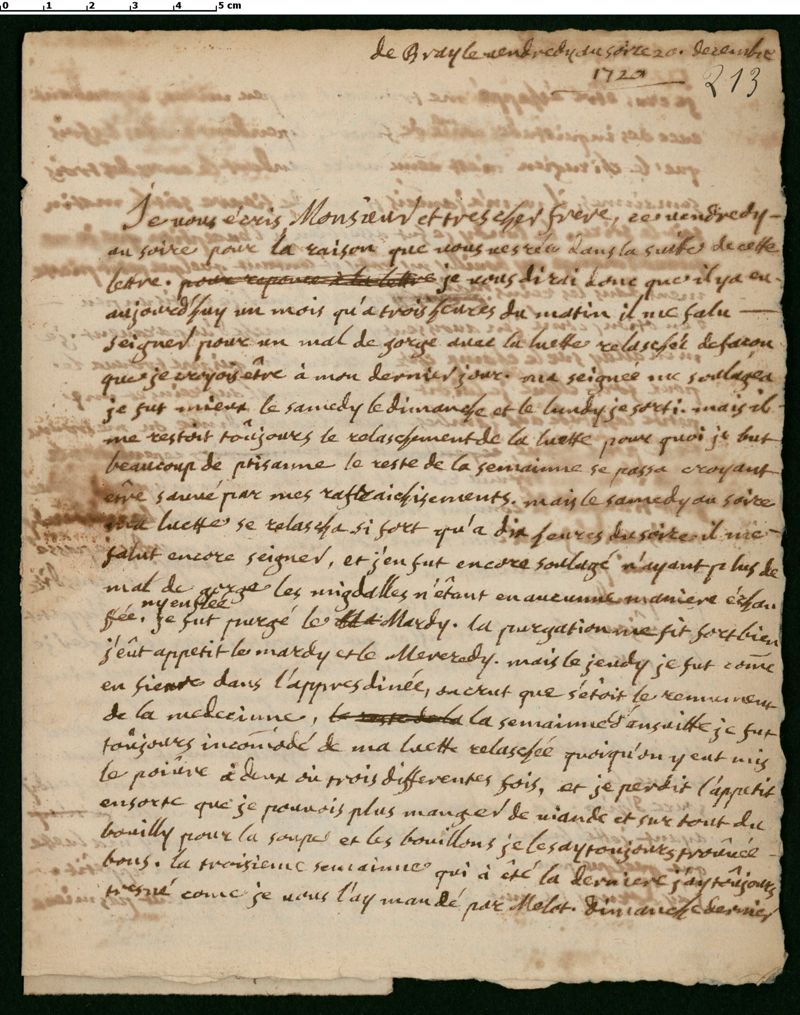 0 1 2 3 4 5 cm
de Bray le vendredy au soire 20. decembre
1720
213
Je vous écris Monsieur et tres cher frere, ce vendredy
au soire pour la raison que vous verréz dans la suitte de cette
lettre. pour reponce à la lettre je vous dirai donc que il y a eu
aujourd'huy un mois qu'a trois heures du matin il me falu
seigner pour un mal de gorge avec la luette relaschée de facon
que je croyois être à mon dernier jour. ma seignée me soulagea
je fut mieux le samedy le dimanche et le lundy je sorti. mais il
me restoit toûjours le relaschement de la luette pour quoi je but
beaucoup de ptisanne le reste de la semainne se passa croyant
être sauvé par mes raffraichisements. mais le samedy au soire
ma luette se relascha si fort qu'a dix heures du soire il me
falut encore seigner, et j'en fut encore soulagé n'ayant plus de
mal de gorge les migdalles n'étant en aucunne maniere échau
ny enflée
fée. je fut purgé le Mardy. la purgation me fit fort bien
j'eût appetit le mardy et le Mercredy. mais le jeudy je fut come
en fievre dans l'appres dinée, on crut que s'étoit le
de la medecinne, le reste de la la semainne d'ensuitte je fut
toûjours incomodé de ma luette relaschée quoiqu'on y eut mis
le poivre à deux où trois differentes fois, et je perdit l'appetit
ensorte que je pouvois plus manger de viande et sur tout du
bouilly pour la soupe et les bouillons je les ay toujours trouvée
bons. la troisieme semainne qui à été la derniere j'ay toûjours
come je vous l'ay mandé par Melot. dimanche dernier